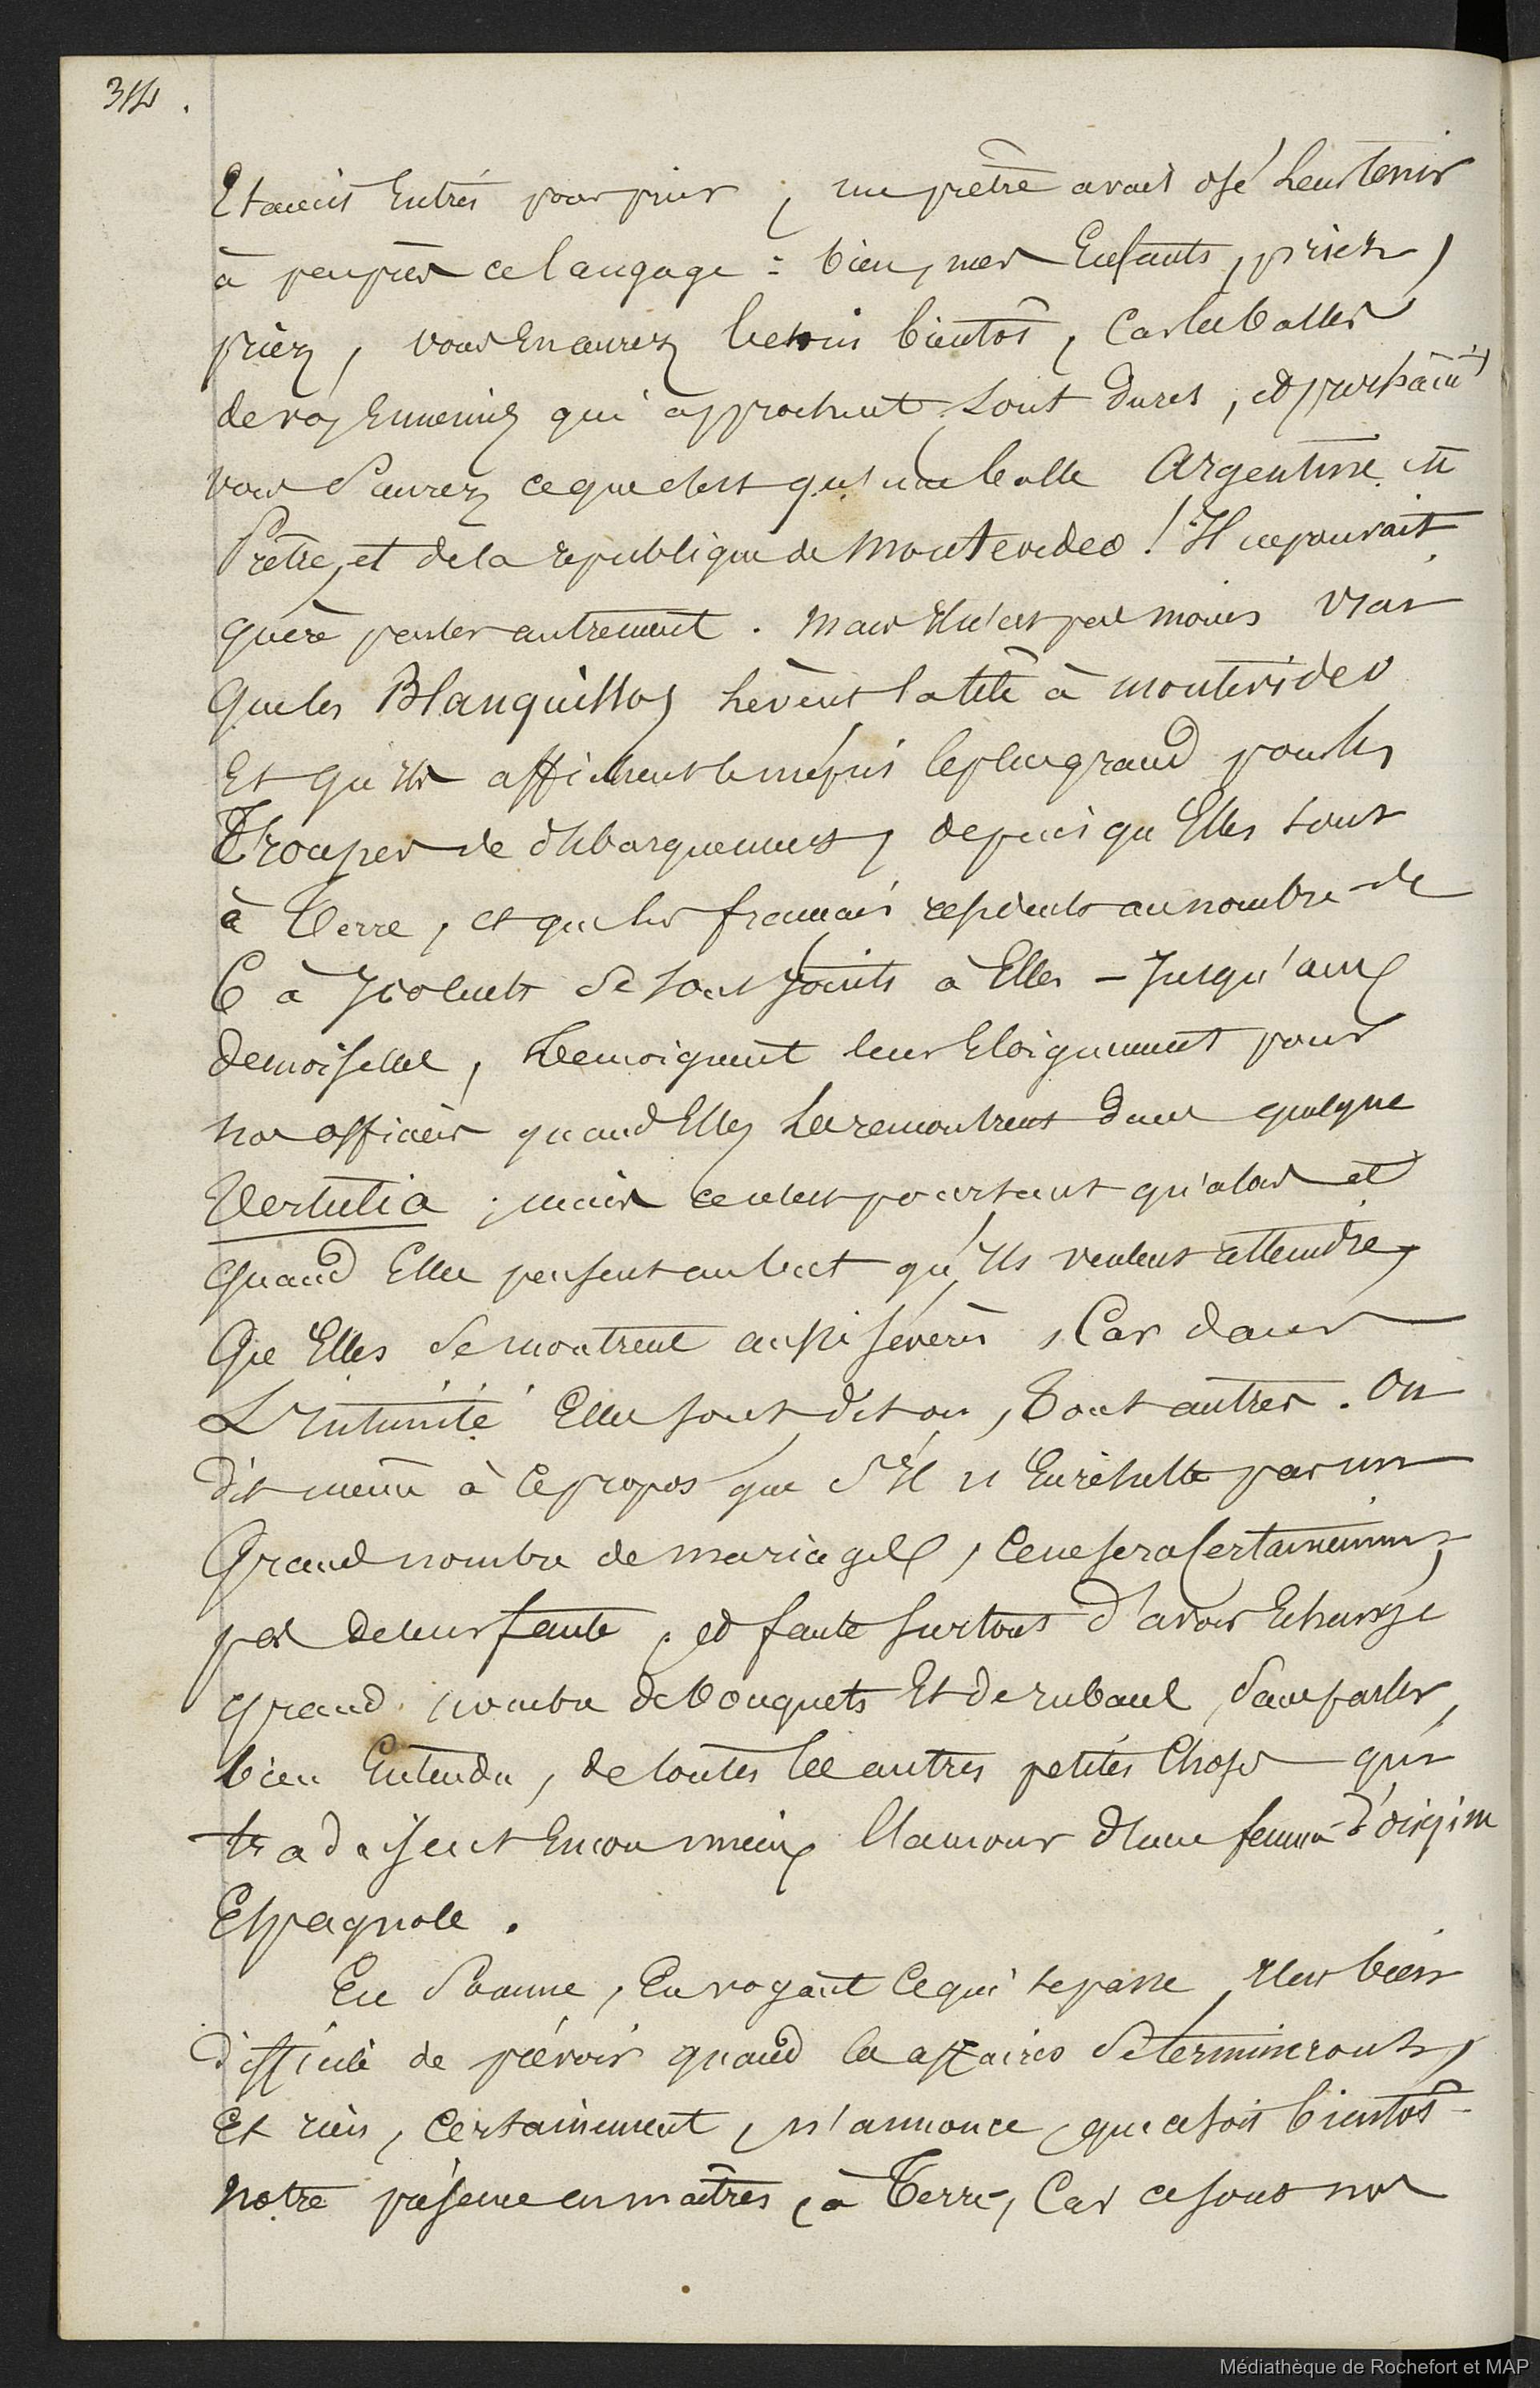 314.
Etaient Entrés pour prier, un prêtre avait osé leur tenir
à peu près ce langage : bien, mes Enfants, priez,
priez, vous en aurez besoin bientôt, Car les balles
de vos Ennemis qui approchent sont dures, et prochain
vous Saurez ce que c'est qu'une balle Argentine
Prêtre, et de la republique de Montevideo ! Il ne pouvait
guère parler autrement. Mais Il n'est pas moins vrai
que les Blanquillos lèvent la tête à Montevideo
Et qu'ils affichent le mépris le plus grand pour les
Troupes de débarquement, depuis qu'Elles sont
à Terre, et que les français résidents au nombre de
6 à 700 Se sont joints à Elles – Jusqu'aux
demoiselles, temoignent leur Eloignement pour
nos officiers quand Elles les rencontrent dans quelque
Tertulia ; mais ce n'est pourtant qu'alors et
quand Elles pensent au but qu'Ils veulent atteindre,
Que Elles Se montrent aussi sévères, Car dans
L'Intimité Elles sont, dit on, Tout autres. On
dit même à ce propos que S'Il n'En résulte pas un
Grand nombre de mariages, Ce ne sera certainement
pas de leur faute, et faute surtout d'avoir Echangé
grand nombre de bouquets Et de rubans, Sans parler,
bien Entendu, de toutes les autres petites Choses qui
traduisent Encore mieux l'amour d'une femme d'origine
Espagnole.
En Somme, En voyant Ce qui se passe, Il est bien
difficile de prévoir quand les affaires Se termineront,
Et rien, Certainement, n'annonce, que ce soit bientôt –
Notre présence en maîtres, à Terre, Car ce sont nos
Médiathèque de Rochefort et MAP